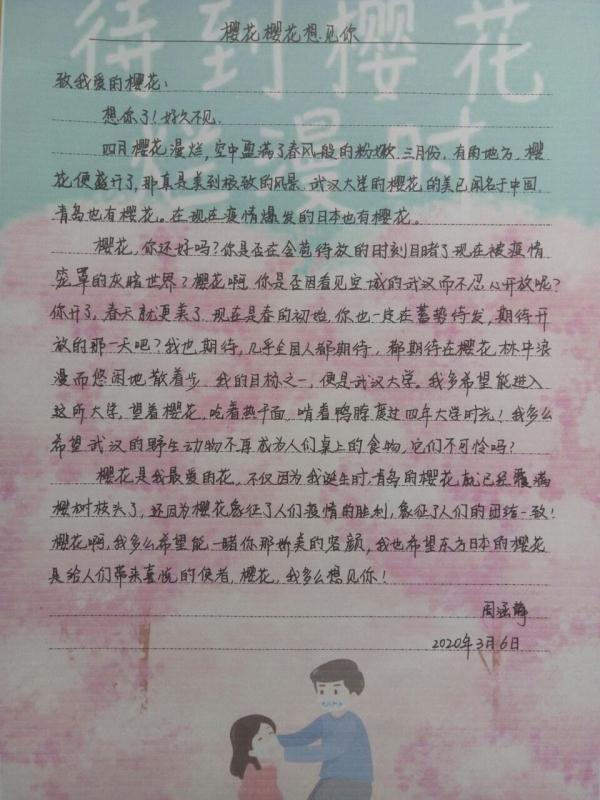 待到樱花
浪漫时
樱花樱花想见你
致我爱的樱花：
想你了！好久不见.
四月樱花漫烂，空中盈满了春风般的粉嫩. 三月份，有的地方，樱
花便盛开了，那真是美到极致的风景. 武汉大学的樱花的美已闻名于中国，
青岛也有樱花。在现在疫情爆发的日本也有樱花。
樱花，你还好吗？你是否在含苞待放的时刻目睹了现在被疫情
笼罩的灰暗世界？樱花啊，你是否因看见空城的武汉而不忍心开放呢？
你开了，春天就更美了. 现在是春的初始，你也一定在蓄势待发，期待开
放的那一天吧？我也期待，几乎全国人都期待，都期待在樱花林中浪
漫而悠闲地散着步. 我的目标之一，便是武汉大学。我多希望能进入
这所大学，望着樱花，吃着热干面，啃着鸭脖度过四年大学时光！我多么
希望武汉的野生动物不再成为人们桌上的食物，它们不可怜吗？
樱花是我最爱的花，不仅因为我诞生时，青岛的樱花就已经覆满
樱树枝头了，还因为樱花象征了人们疫情的胜利，象征了人们的团结一致！
樱花啊，我多么希望能一睹你那娇美的容颜，我也希望东方日本的樱花
是给人们带来喜悦的使者，樱花，我多么想见你！
周涵静
2020年3月6日